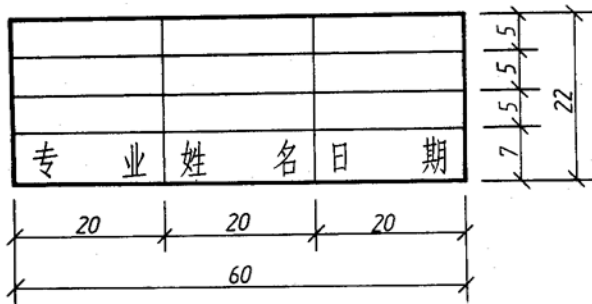 专 业 姓 名 日 期
5
5
5
7
22
20 20 20
60